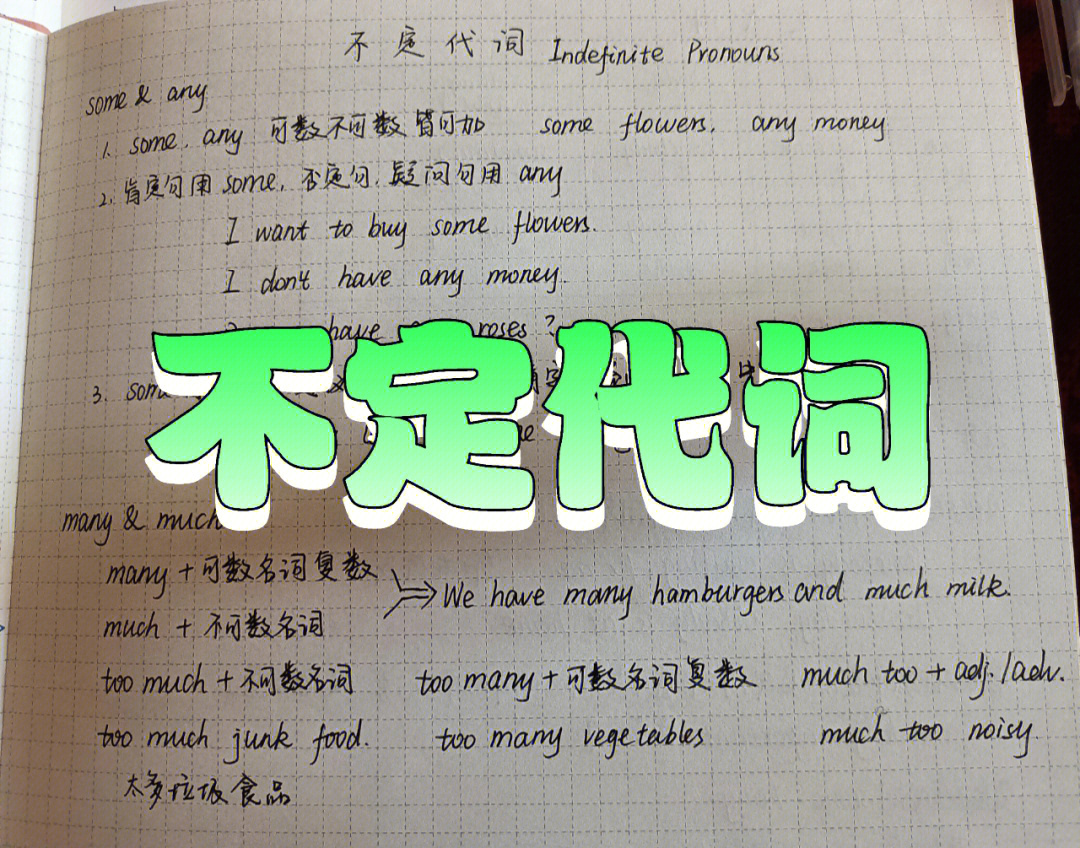 不定代词 Indefinite Pronouns
some & any
1. some, any 可数不可数皆可加 some flowers. any money
2. 肯定句用 some, 否定句.疑问句用 any
I want to buy some flowers.
I don't have any money.
have roses?
3. som
不定代词
many & much
many + 可数名词复数
much + 不可数名词
⇒ We have many hamburgers and much milk.
too much + 不可数名词 too many + 可数名词复数 much too + adj./adv.
too much junk food. too many vegetables much too noisy.
太多垃圾食品